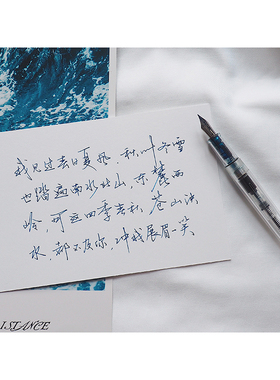 我见过春日夏风、秋叶冬雪
也踏遍南水北山、东麓西
岭,可这四季春秋、苍山泱
水,都不及你,冲我展眉一笑
ISTANCE